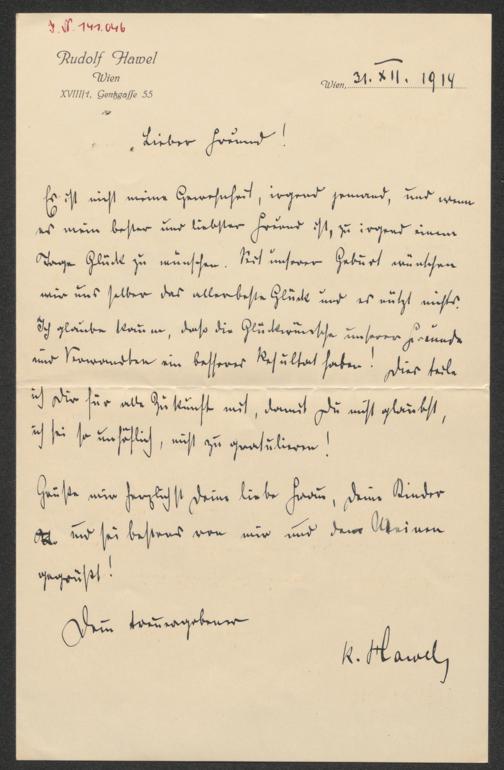 J.N. 141.046
Rudolf Hawel
Wien
XVIII/1, Gentzgasse 55
Wien, 31. XII. 1914
Lieber Freund!
Es ist nicht meine Gewohnheit, irgend jemand, und wenn
es mein bester und liebster Freund ist, zu irgend einem
Tage Glück zu wünschen. Seit unserer Geburt wünschen
wir uns selber das allerbeste Glück und es nützt nichts.
Ich glaube kaum, daß die Glückwünsche unserer Freunde
und Verwandten ein besseres Resultat haben! Dies teile
ich Dir für alle Zukunft mit, damit Du nicht glaubst,
ich sei so unhöflich, nicht zu gratulieren!
Grüße mir herzlichst Deine liebe Frau, Deine Kinder
und sei bestens von mir und den Meinen
gegrüßt!
Dein treuergebener
R. Hawel